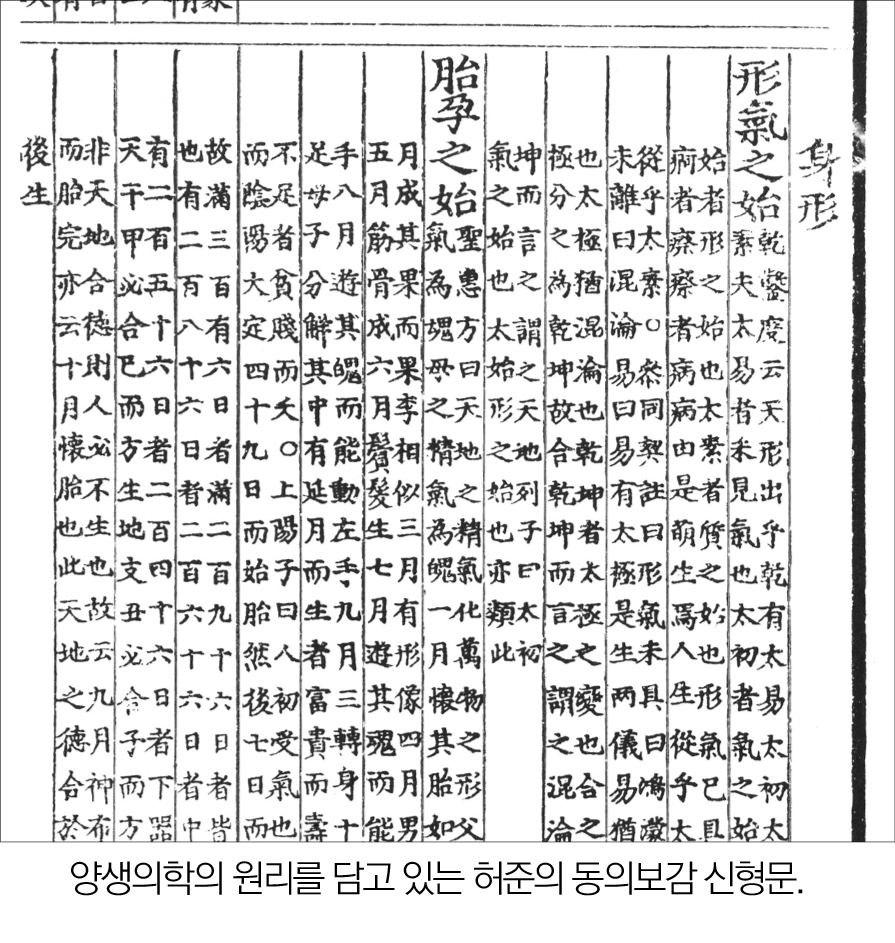 身形
形氣之始
乾鑿度云天形出乎乾有太易太初太
素夫太易者未見氣也太初者氣之始
始者形之始也太素者質之始也形氣已具
痾者瘵瘵者病病由是萌生焉人生從乎太
從乎太素○參同契註曰形氣未具曰鴻濛
未離曰混淪易曰易有太極是生两儀易猶
也太極猶混淪也乾坤者太極之變也合之
極分之為乾坤故合乾坤而言之謂之混淪
坤而言之謂之天地列子曰太初
氣之始也太始形之始也亦類此
胎孕之始
聖惠方曰天地之精氣化萬物之形父
氣為魂母之精氣為魄一月懷其胎如
月成其果而果李相似三月有形像四月男
五月筋骨成六月鬢髮生七月遊其魂而能
手八月遊其魄而能動左手九月三轉身十
足母子分解其中有延月而生者富貴而壽
不足者貧賤而夭○上陽子曰人初受氣也
而陰陽大定四十九日而始胎然後七日而
故滿三百有六日者滿二百九十六日者皆
也有二百八十六日者二百六十六日者中
有二百五十六日者二百四十六日者下器
天干甲必合己而方生地支丑必合子而方
非天地合德則人必不生也故云九月神布
而胎完亦云十月懷胎也此天地之德合於
後生
양생의학의 원리를 담고 있는 허준의 동의보감 신형문.